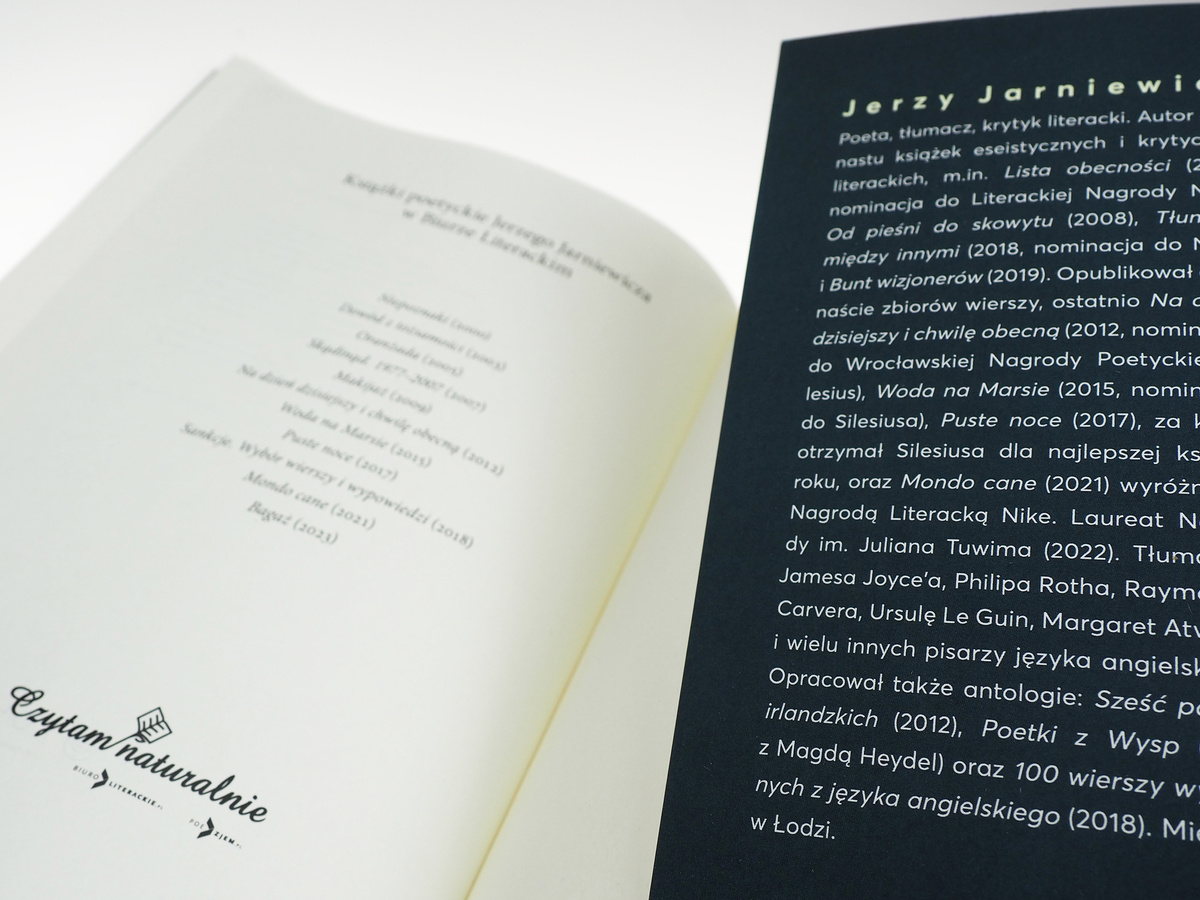 Książki poetyckie Jerzego Jarniewicza
w Biurze Literackim
Niepoznaki (2000)
Dowód z tożsamości (2003)
Oranżada (2005)
Skądinąd. 1977–2007 (2007)
Makijaż (2009)
Na dzień dzisiejszy i chwilę obecną (2012)
Woda na Marsie (2015)
Puste noce (2017)
Sankcje. Wybór wierszy i wypowiedzi (2018)
Mondo cane (2021)
Bagaż (2023)
Czytam naturalnie
BIURO LITERACKIE.PL
POEZJEM.PL
Jerzy Jarniewi
Poeta, tłumacz, krytyk literacki. Autor
nastu książek eseistycznych i krytyc
literackich, m.in. Lista obecności (2
nominacja do Literackiej Nagrody N
Od pieśni do skowytu (2008), Tłum
między innymi (2018, nominacja do N
i Bunt wizjonerów (2019). Opublikował
naście zbiorów wierszy, ostatnio Na d
dzisiejszy i chwilę obecną (2012, nomin
do Wrocławskiej Nagrody Poetyckie
lesius), Woda na Marsie (2015, nomin
do Silesiusa), Puste noce (2017), za k
otrzymał Silesiusa dla najlepszej ks
roku, oraz Mondo cane (2021) wyróżn
Nagrodą Literacką Nike. Laureat Na
dy im. Juliana Tuwima (2022). Tłuma
Jamesa Joyce'a, Philipa Rotha, Raymo
Carvera, Ursulę Le Guin, Margaret Atw
i wielu innych pisarzy języka angielsk
Opracował także antologie: Sześć po
irlandzkich (2012), Poetki z Wysp
z Magdą Heydel) oraz 100 wierszy wy
nych z języka angielskiego (2018). Mie
w Łodzi.